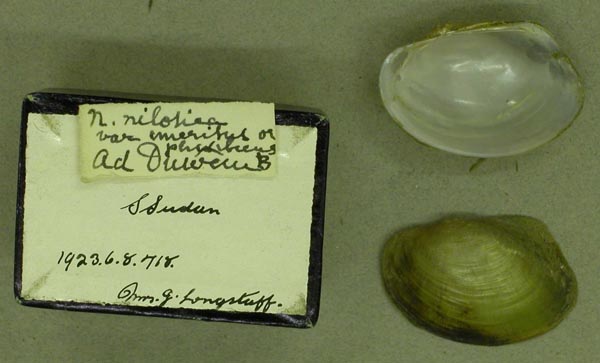 N. nilotica
var emeritus or
Ad Duweim B
S Sudan
1923.6.8.718.
Mrs. G. Longstaff.